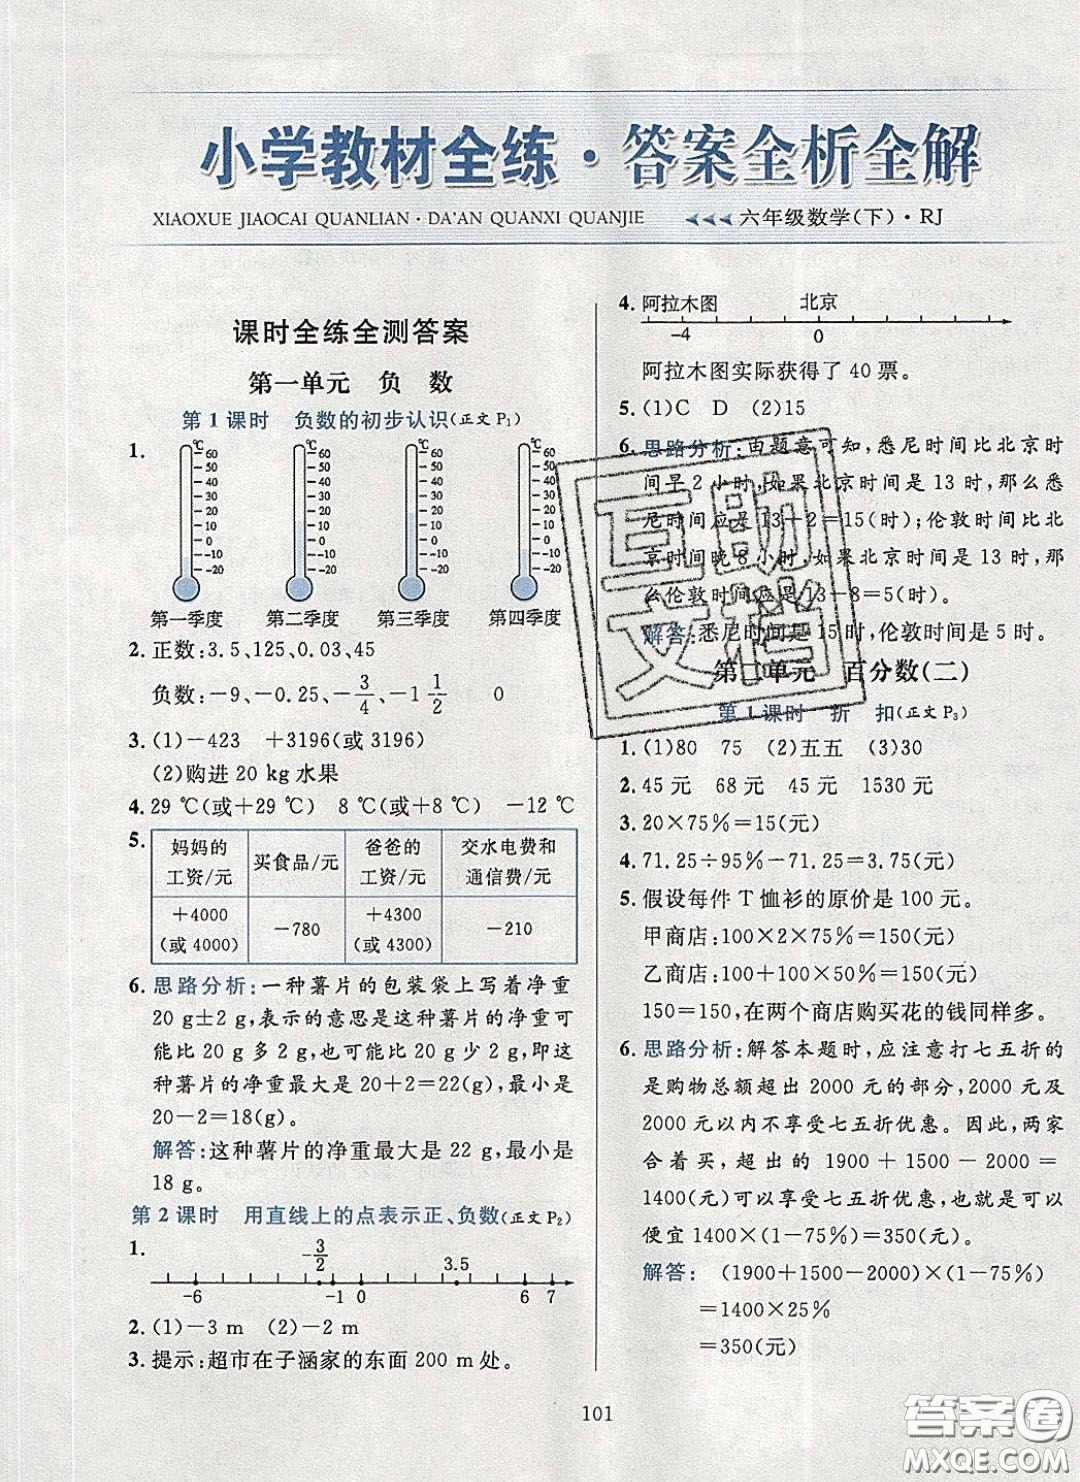 小学教材全练·答案全析全解
XIAOXUE JIAOCAI QUANLIAN·DA'AN QUANXI QUANJIE
六年级数学(下)·RJ
课时全练全测答案
第一单元 负 数
第1课时 负数的初步认识(正文P₁)
1.
℃ ℃ ℃ ℃
60 60 60 60
50 50 50 50
40 40 40 40
30 30 30 30
20 20 20 20
10 10 10 10
0 0 0 0
-10 -10 -10 -10
-20 -20 -20 -20
第一季度 第二季度 第三季度 第四季度
2. 正数:3.5,125,0.03,45
负数:-9,-0.25,-3/4,-1 1/2 0
3. (1)-423 +3196(或3196)
(2)购进20 kg水果
4. 29 ℃(或+29 ℃) 8 ℃(或+8 ℃) -12 ℃
5.
妈妈的工资/元 买食品/元 爸爸的工资/元 交水电费和通信费/元
+4000(或4000) -780 +4300(或4300) -210
6. 思路分析:一种薯片的包装袋上写着净重
20 g±2 g,表示的意思是这种薯片的净重可
能比20 g多2 g,也可能比20 g少2 g,即这
种薯片的净重最大是20+2=22(g),最小是
20-2=18(g)。
解答:这种薯片的净重最大是22 g,最小是
18 g。
第2课时 用直线上的点表示正、负数(正文P₂)
1.
-3/2 3.5
-6 -1 0 6 7
2. (1)-3 m (2)-2 m
3. 提示:超市在子涵家的东面200 m处。
4. 阿拉木图 北京
-4 0
阿拉木图实际获得了40票。
5. (1)C D (2)15
6. 思路分析:由题意可知,悉尼时间比北京时
间早2小时,如果北京时间是13时,那么悉
尼时间应是13+2=15(时);伦敦时间比北
京时间晚8小时,如果北京时间是13时,那
么伦敦时间应是13-8=5(时)。
解答:悉尼时间是15时,伦敦时间是5时。
第二单元 百分数(二)
第1课时 折 扣(正文P₃)
1. (1)80 75 (2)五五 (3)30
2. 45元 68元 45元 1530元
3. 20×75%=15(元)
4. 71.25÷95%-71.25=3.75(元)
5. 假设每件T恤衫的原价是100元。
甲商店:100×2×75%=150(元)
乙商店:100+100×50%=150(元)
150=150,在两个商店购买花的钱同样多。
6. 思路分析:解答本题时,应注意打七五折的
是购物总额超出2000元的部分,2000元及
2000元以内不享受七五折优惠。因此,两家
合着买,超出的1900+1500-2000=
1400(元)可以享受七五折优惠,也就是可以
便宜1400×(1-75%)元。
解答: (1900+1500-2000)×(1-75%)
=1400×25%
=350(元)
101
互助文档
答案圈
MXQE.COM